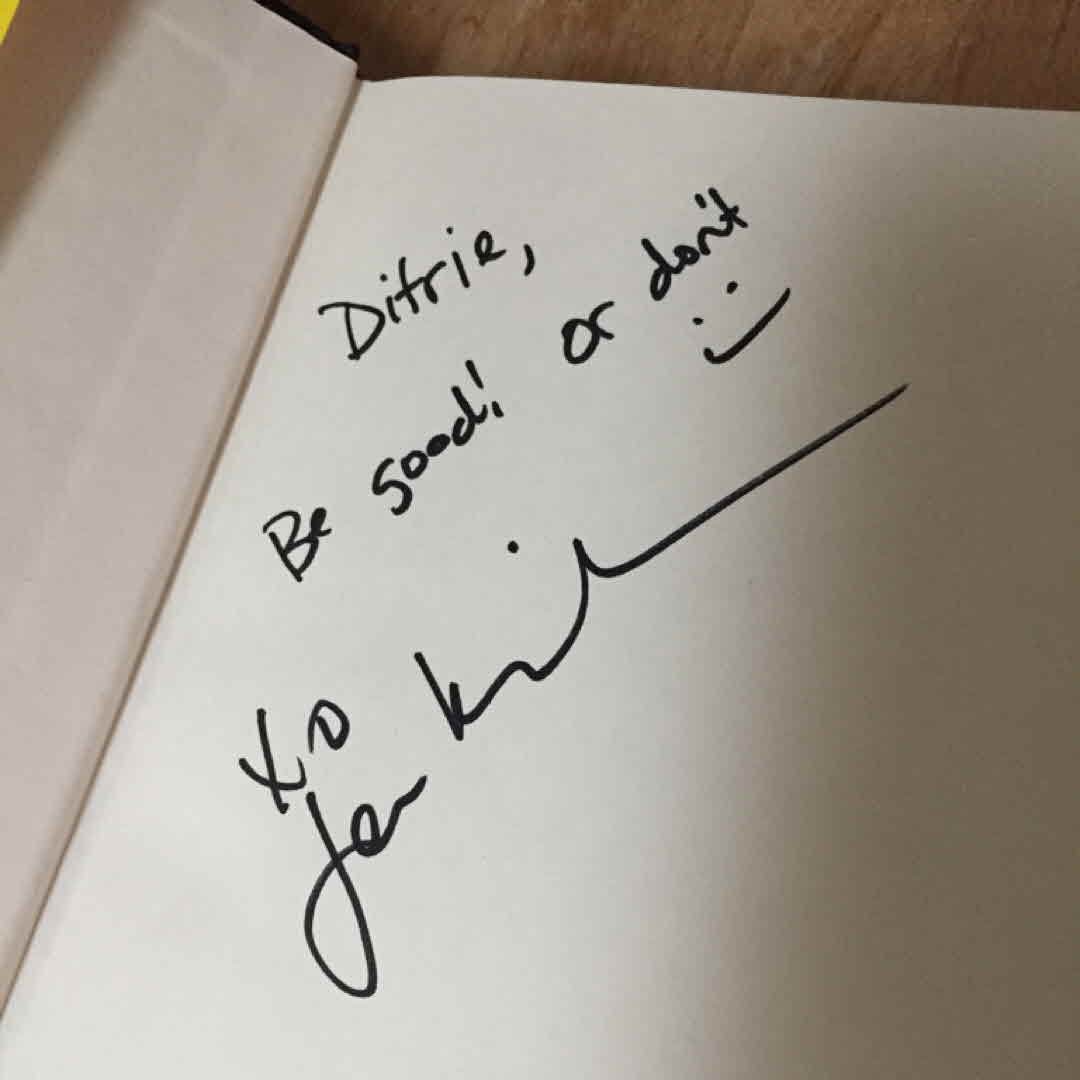 Ditrie,
Be good! or don't :)
XO
Jen